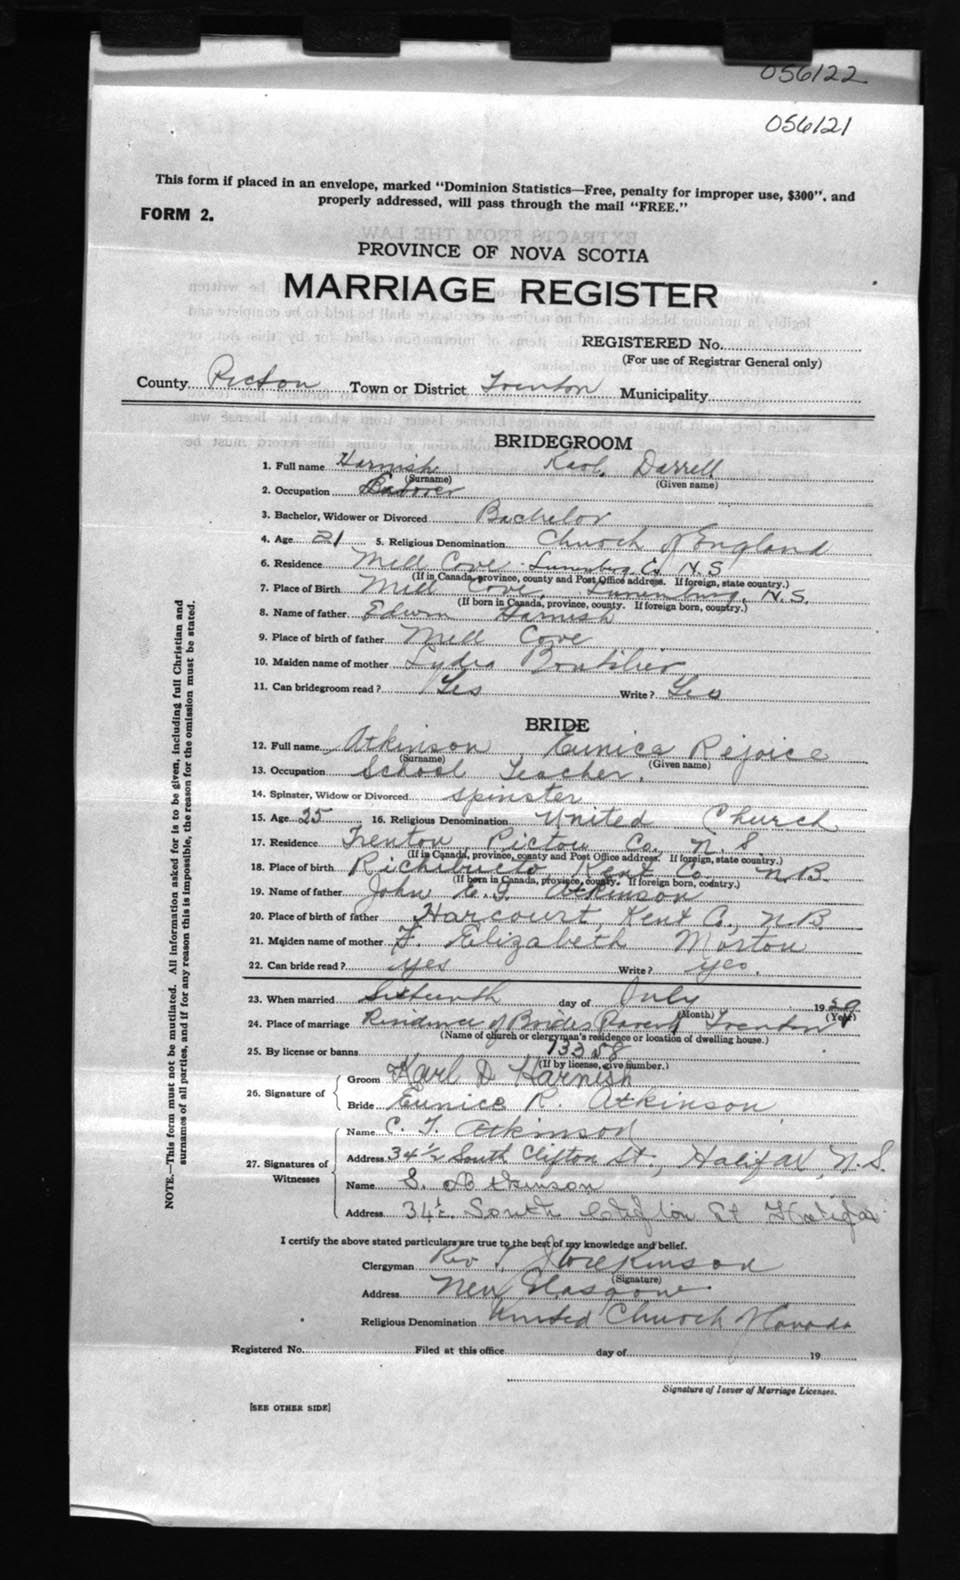 056122
056121
This form if placed in an envelope, marked "Dominion Statistics—Free, penalty for improper use, $300", and
properly addressed, will pass through the mail "FREE."
FORM 2.
PROVINCE OF NOVA SCOTIA
MARRIAGE REGISTER
REGISTERED No.
(For use of Registrar General only)
County Pictou Town or District Trenton Municipality
BRIDEGROOM
1. Full name Harnish Karl Darrell
(Surname) (Given name)
2. Occupation
3. Bachelor, Widower or Divorced Bachelor
4. Age 21 5. Religious Denomination Church of England
6. Residence Mill Cove Lunenburg Co N.S
(If in Canada, province, county and Post Office address. If foreign, state country.)
7. Place of Birth Mill Cove, Lunenburg, N.S.
(If born in Canada, province, county. If foreign born, country.)
8. Name of father Edwin Harnish
9. Place of birth of father Mill Cove
10. Maiden name of mother Lydia Boutilier
11. Can bridegroom read? Yes Write? Yes
BRIDE
12. Full name Atkinson Eunice Rejoice
(Surname) (Given name)
13. Occupation School Teacher.
14. Spinster, Widow or Divorced spinster
15. Age 25 16. Religious Denomination United Church
17. Residence Trenton Pictou Co., N.S
(If in Canada, province, county and Post Office address. If foreign, state country.)
18. Place of birth Richibucto, Kent Co. N.B.
(If born in Canada, province, county. If foreign born, country.)
19. Name of father John E. G. Atkinson
20. Place of birth of father Harcourt, Kent Co., N.B.
21. Maiden name of mother F. Elizabeth Morton
22. Can bride read? yes Write? yes.
23. When married Sixteenth day of July 1929
(Month) (Year)
24. Place of marriage Residence of Brides Parents Trenton
(Name of church or clergyman's residence or location of dwelling house.)
25. By license or banns 73358
(If by license, give number.)
26. Signature of Groom Karl D Harnish
Bride Eunice R. Atkinson
27. Signatures of Witnesses Name C. T. Atkinson
Address 34½ South Clifton St., Halifax, N.S.
Name S. Atkinson
Address 34½ South Clifton St Halifax
I certify the above stated particulars are true to the best of my knowledge and belief.
Clergyman Rev Atkinson
(Signature)
Address New Glasgow
Religious Denomination United Church of Canada
Registered No. Filed at this office day of 19
Signature of Issuer of Marriage Licenses.
[SEE OTHER SIDE]
NOTE.—This form must not be mutilated. All information asked for is to be given, including full Christian and
surnames of all parties, and if for any reason this is impossible, the reason for the omission must be stated.